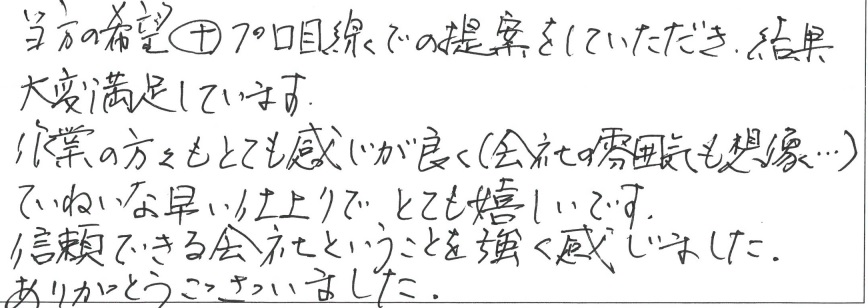 当方の希望⊕プロ目線での提案をしていただき、結果
大変満足しています。
作業の方々もとても感じが良く(会社の雰囲気も想像…)
ていねいな早い仕上りで とても嬉しいです。
信頼できる会社ということを強く感じました。
ありがとうございました。